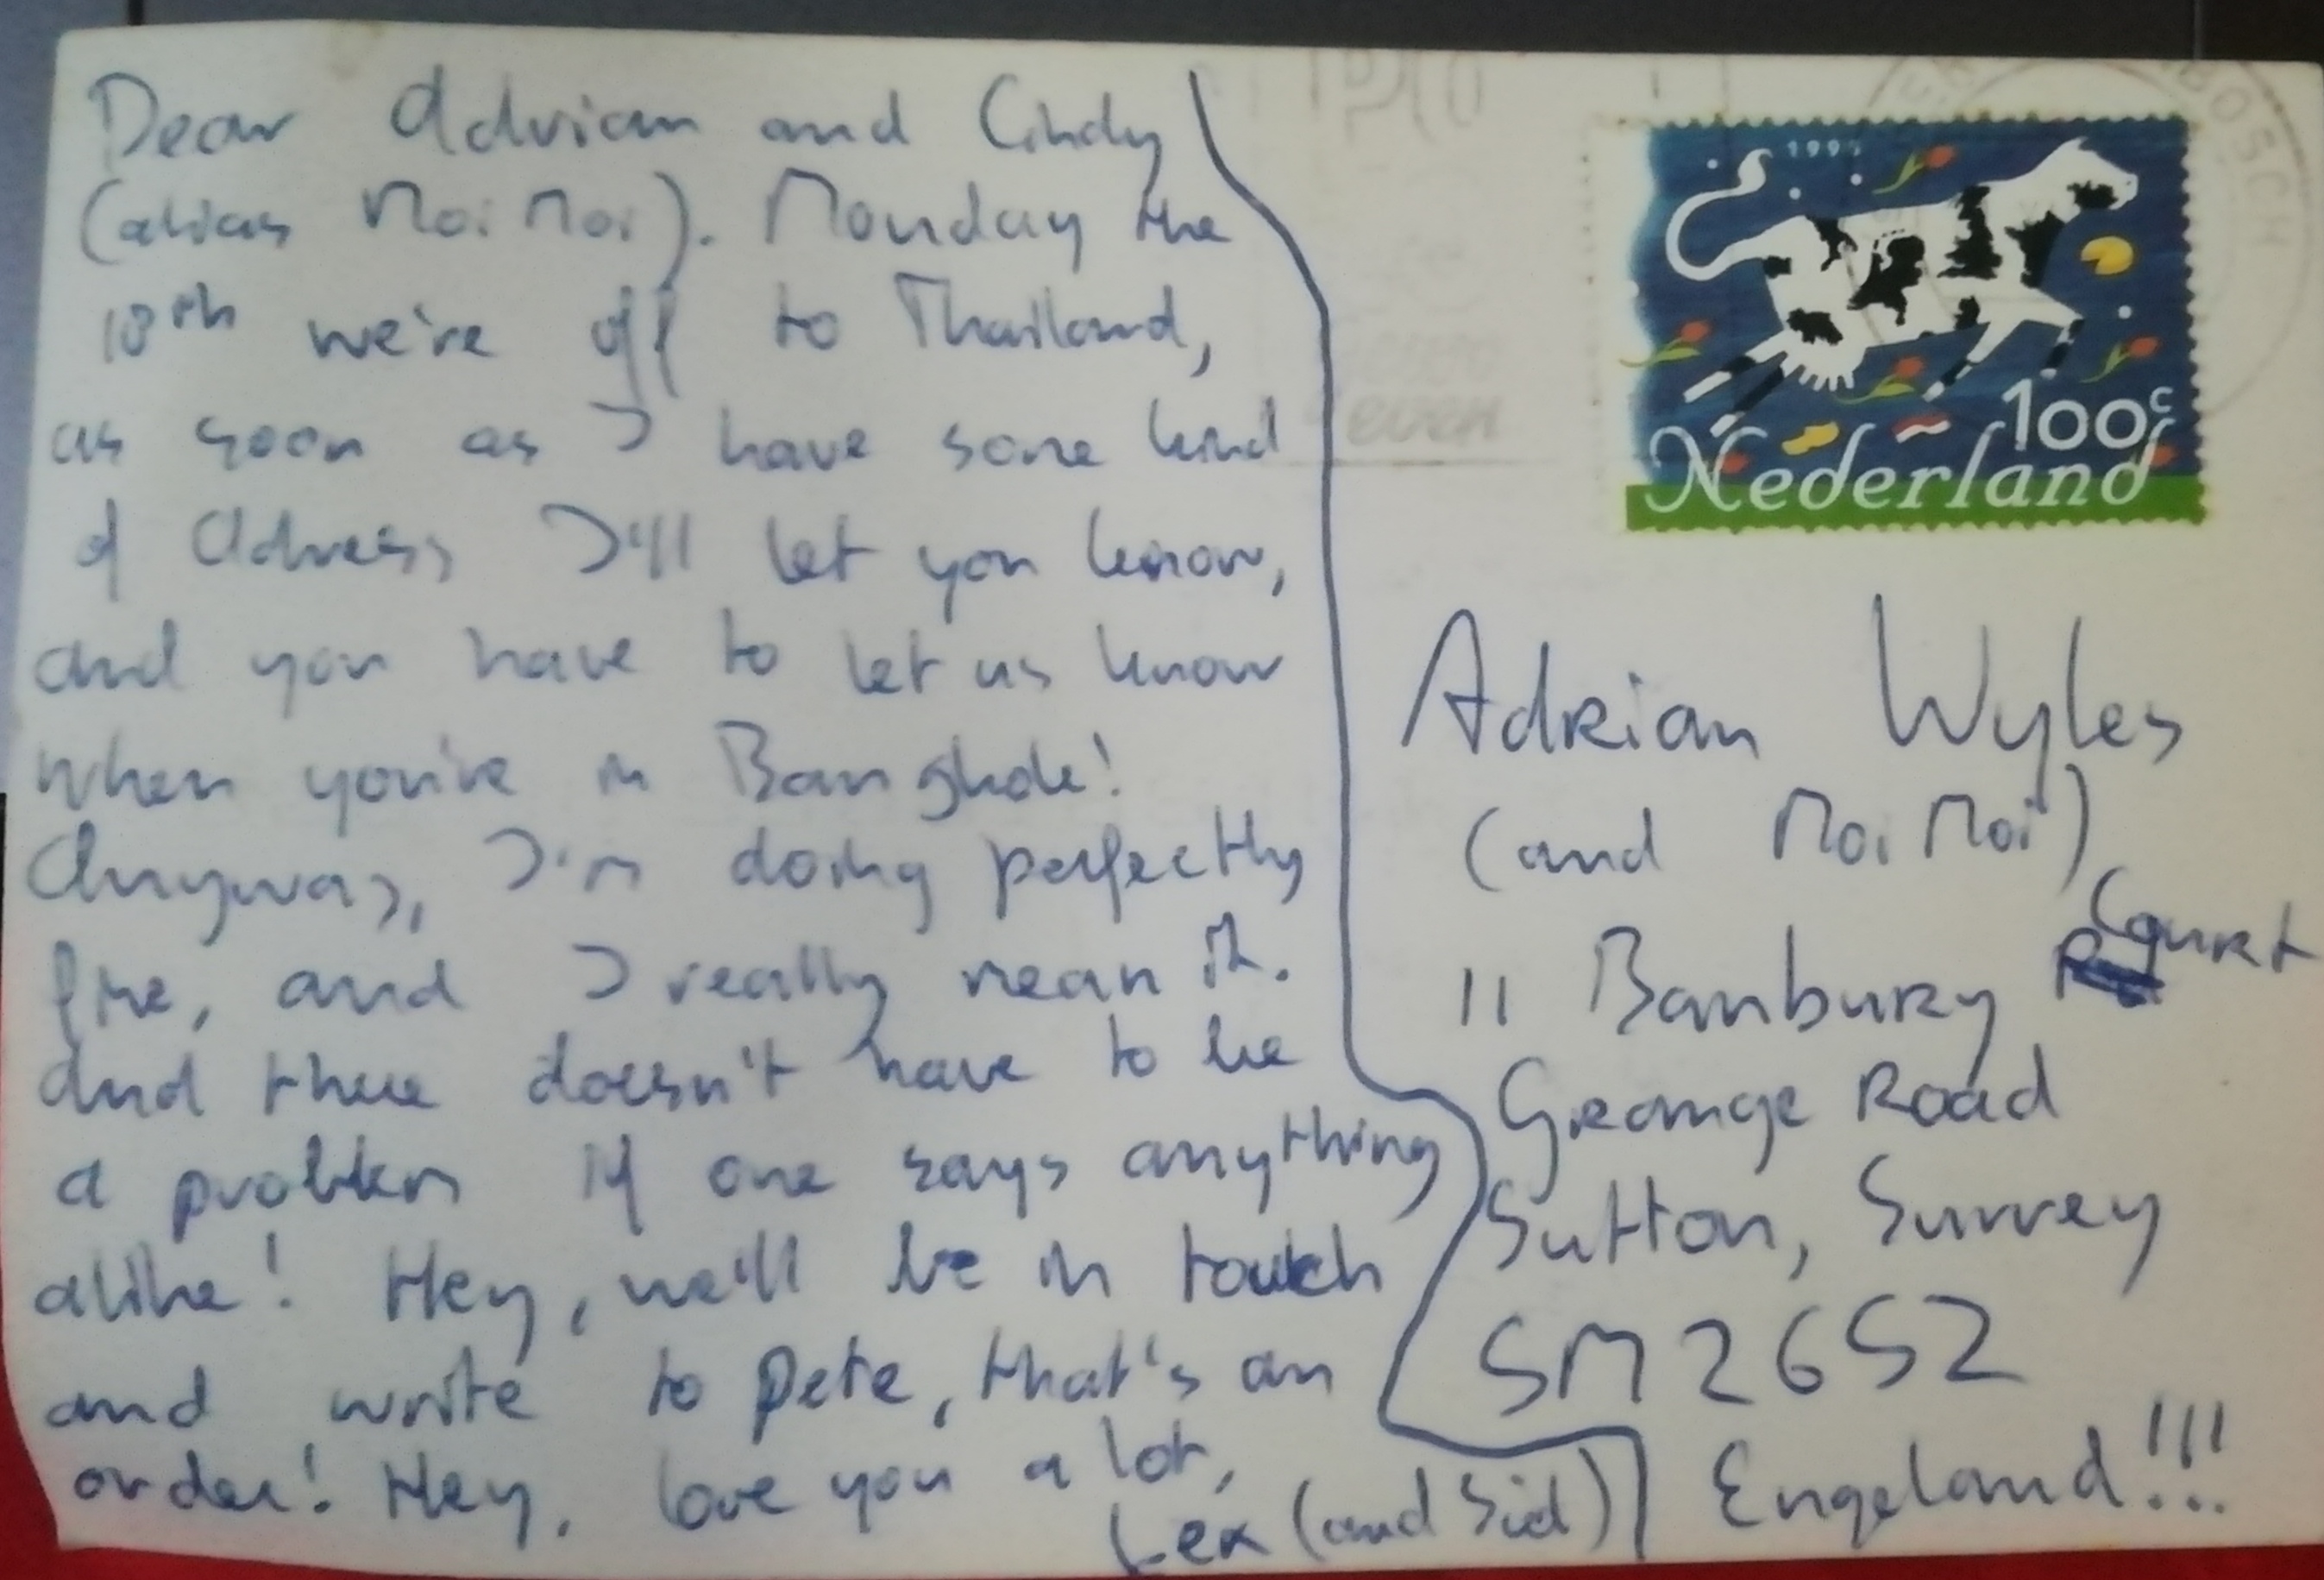 Dear Adrian and Cindy
(alias Moi Moi). Monday the
10th we're off to Thailand,
as soon as I have some kind
of Adress I'll let you know,
and you have to let us know
when you're in Bangkok!
Anyway, I'm doing perfectly
fine, and I really mean it.
And there doesn't have to be
a problem if one says anything
alike! Hey, we'll be in touch
and write to Pete, that's an
order! Hey, love you a lot,
Lex (and Sid)
1995
100c
Nederland
BOSCH
Adrian Wyles
(and Moi Moi)
11 Banbury Court
Grange Road
Sutton, Surrey
SM2 6SZ
Engeland!!!